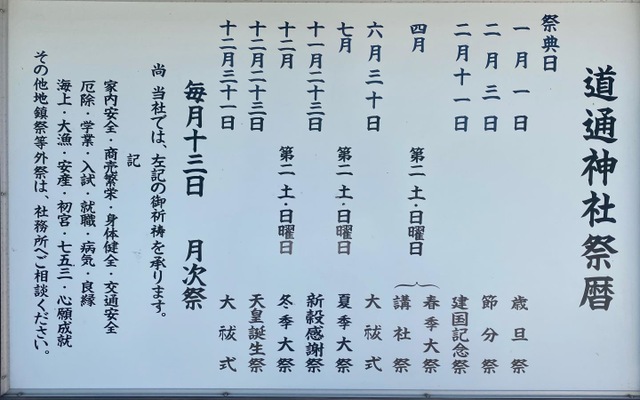 道通神社祭暦
祭典日
一月一日 歳旦祭
二月三日 節分祭
二月十一日 建国記念祭
四月 第二土・日曜日 春季大祭
講社祭
六月三十日 大祓式
七月 第二土・日曜日 夏季大祭
十一月二十三日 新穀感謝祭
十二月 第二土・日曜日 冬季大祭
十二月二十三日 天皇誕生祭
十二月三十一日 大祓式
毎月十三日 月次祭
尚 当社では、左記の御祈祷を承ります。
記
家内安全・商売繁栄・身体健全・交通安全
厄除・学業・入試・就職・病気・良縁
海上・大漁・安産・初宮・七五三・心願成就
その他地鎮祭等外祭は、社務所へご相談ください。